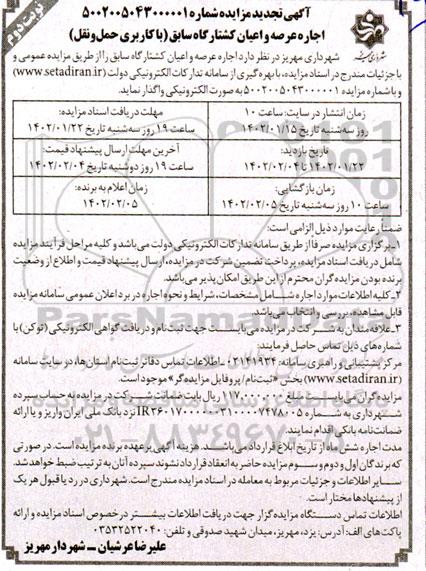 نوبت دوم
آگهی تجدید مزایده شماره ۵۰۰۲۰۰۵۰۴۳۰۰۰۰۰۱
اجاره عرصه و اعیان کشتارگاه سابق (با کاربری حمل و نقل)
شهرداری مهریز در نظر دارد اجاره عرصه و اعیان کشتارگاه سابق را از طریق مزایده عمومی و
با جزئیات مندرج در اسناد مزایده، با بهره گیری از سامانه تدارکات الکترونیکی دولت (www.setadiran.ir)
و با شماره مزایده ۵۰۰۲۰۰۵۰۴۳۰۰۰۰۰۱ به صورت الکترونیکی واگذار نماید.
زمان انتشار در سایت: ساعت ۱۰
روز سه‌شنبه تاریخ ۱۴۰۲/۰۱/۱۵
مهلت دریافت اسناد مزایده:
ساعت ۱۹ روز سه‌شنبه تاریخ ۱۴۰۲/۰۱/۲۲
تاریخ بازدید:
۱۴۰۲/۰۱/۲۲ تا ۱۴۰۲/۰۲/۰۴
آخرین مهلت ارسال پیشنهاد قیمت:
ساعت ۱۹ روز دوشنبه تاریخ ۱۴۰۲/۰۲/۰۴
زمان بازگشایی:
ساعت ۱۰ روز سه‌شنبه تاریخ ۱۴۰۲/۰۲/۰۵
زمان اعلام به برنده:
۱۴۰۲/۰۲/۰۵
ضمنا رعایت موارد ذیل الزامی است:
۱-برگزاری مزایده صرفا از طریق سامانه تدارکات الکترونیکی دولت می‌باشد و کلیه مراحل فرآیند مزایده
شامل دریافت اسناد مزایده، پرداخت تضمین شرکت در مزایده، ارسال پیشنهاد قیمت و اطلاع از وضعیت
برنده بودن مزایده گران محترم از این طریق امکان پذیر می‌باشد.
۲-کلیه اطلاعات موارد اجاره شامل مشخصات، شرایط و نحوه اجاره در برد اعلان عمومی سامانه مزایده
قابل مشاهده، بررسی و انتخاب می‌باشد.
۳-علاقه‌مندان به شرکت در مزایده می‌بایست جهت ثبت نام و دریافت گواهی الکترونیکی (توکن) با
شماره‌های ذیل تماس حاصل فرمایند:
مرکز پشتیبانی و راهبری سامانه: ۰۲۱۴۱۹۳۴ - اطلاعات تماس دفاتر ثبت‌نام استان‌ها، در سایت سامانه
(www.setadiran.ir) بخش «ثبت‌نام / پروفایل مزایده‌گر» موجود است.
مزایده گران می بایست مبلغ ۱۱۷۰۰۰۰۰۰ ریال بابت ضمانت شرکت در مزایده به حساب سپرده
شهرداری به شماره IR۳۶۰۱۷۰۰۰۰۰۰۳۱۰۰۰۰۷۴۷۸۰۰۵ نزد بانک ملی ایران واریز و یا ارائه
ضمانت‌نامه بانکی اقدام نمایند.
مدت اجاره شش ماه از تاریخ ابلاغ قرارداد می‌باشد. هزینه آگهی بر عهده برنده مزایده است. در صورتی
که برندگان اول و دوم و سوم مزایده حاضر به انعقاد قرارداد نشوند سپرده آنان به ترتیب ضبط خواهد شد.
سایر اطلاعات و جزئیات مربوط به معامله در اسناد مزایده مندرج است. شهرداری در رد یا قبول هر یک
از پیشنهادها مختار است.
اطلاعات تماس دستگاه مزایده گزار جهت دریافت اطلاعات بیشتر در خصوص اسناد مزایده و ارائه
پاکت‌های الف: آدرس: یزد، مهریز، میدان شهید صدوقی و تلفن: ۰۳۵۳۲۵۲۲۰۴۰
علیرضا عرشیان - شهردار مهریز
ParsNamad
۰۲۱-۸۸۳۴۹۶۷۰